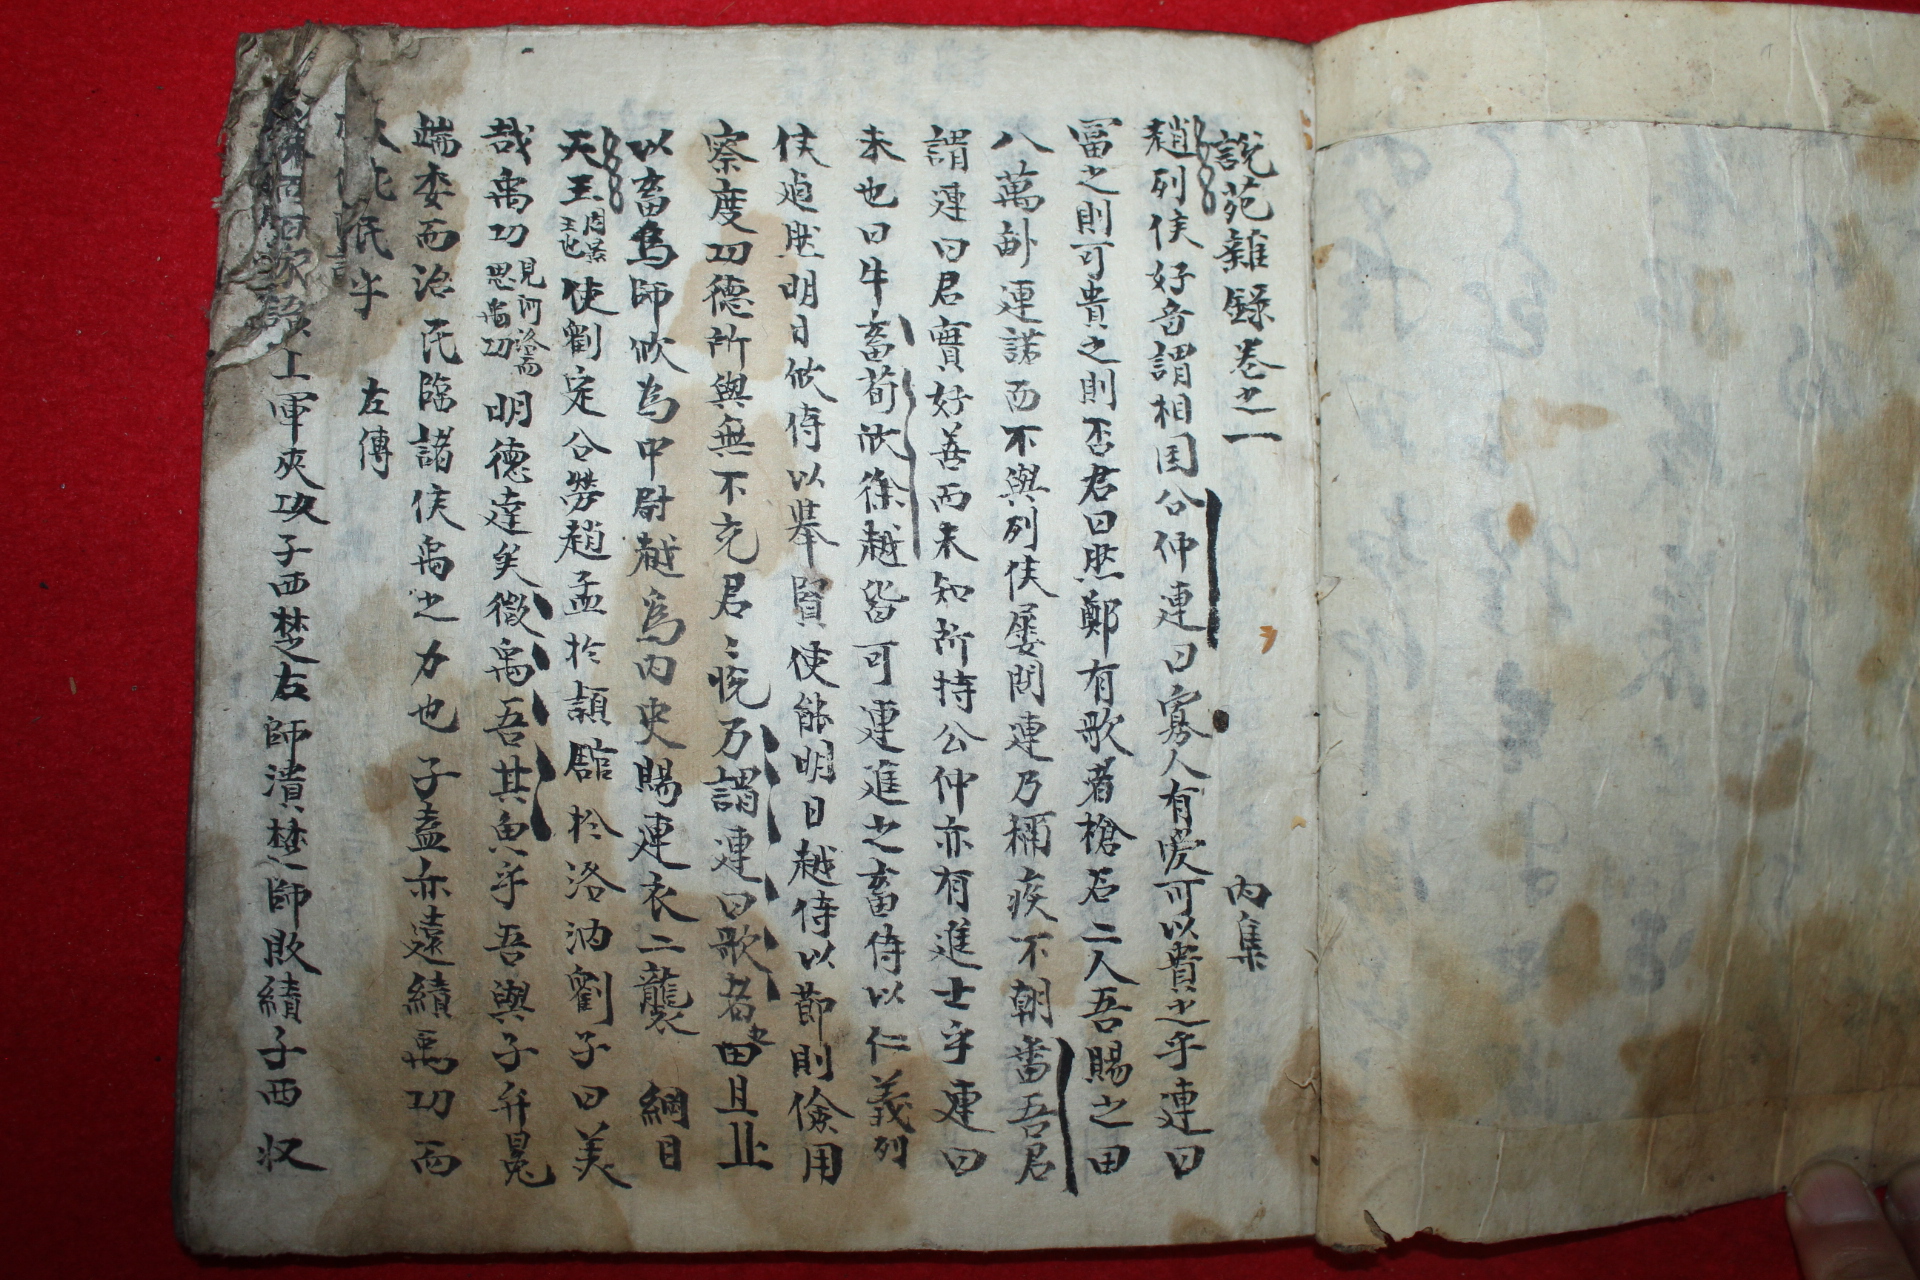 說苑雜錄卷之一　內集
趙列侯好音謂相国公仲連曰寡人有爱可以貴之乎連曰
冨之則可貴之則否君曰然鄭有歌者槍石二人吾賜之田
八萬畝連諾而不與列侯屢問連乃稱疾不朝番吾君
謂連曰君實好善而未知所持公仲亦有進士乎連曰
未也曰牛畜荀欣徐越皆可連進之畜侍以仁義列
侯逌然明日欣侍以擧賢使能明日越侍以節則儉用
察度功德所與無不充君〻悅乃謂連曰歌者之田且止
以畜爲師欣為中尉越爲內史賜連衣二襲　綱目
天王周景王也使劉定公勞趙孟於潁舘於洛汭劉子曰美
哉禹功見河洛而思禹功明德遠矣微禹吾其魚乎吾與子弁冕
端委而治民臨諸侯禹之力也子盍亦遠績禹功而
大庇民乎　左傳
上軍夾攻子西楚左師潰楚師敗績子西収